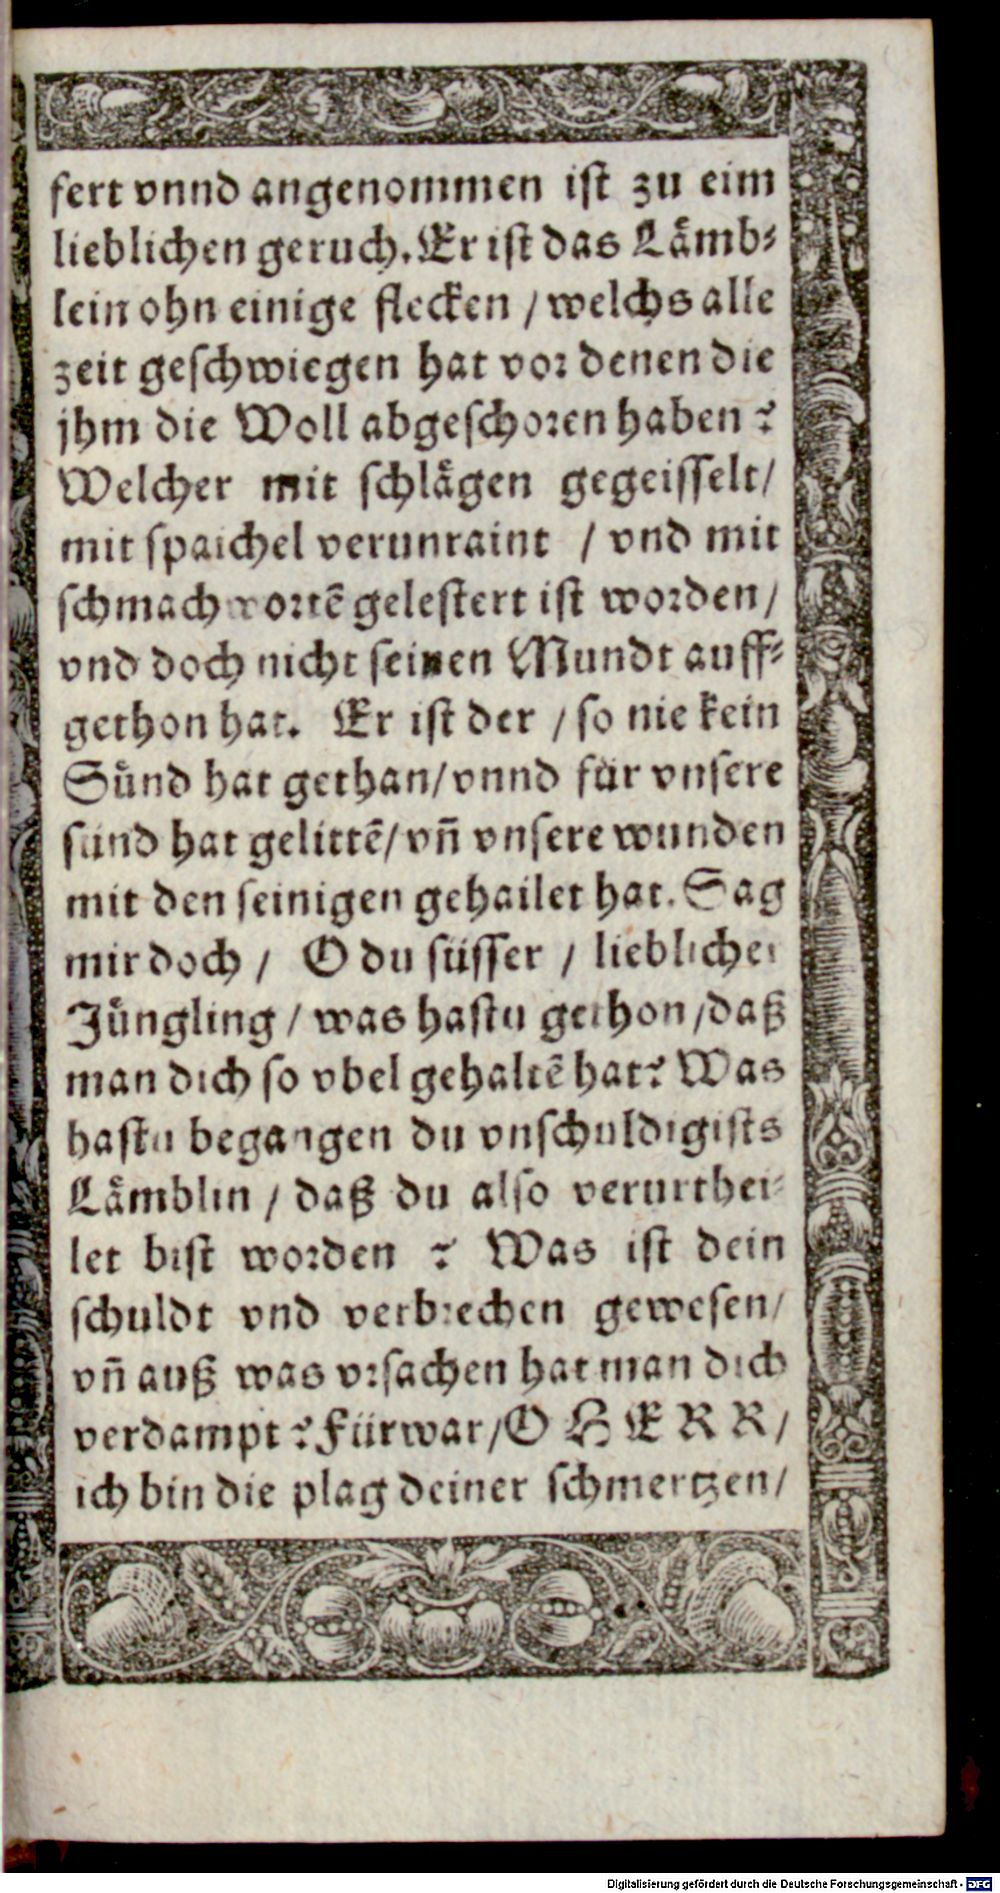 fert vnnd angenommen ist zu eim
lieblichen geruch. Er ist das Lämb⸗
lein ohn einige flecken / welchs alle
zeit geschwiegen hat vor denen die
jhm die Woll abgeschoren haben?
Welcher mit schlägen gegeisselt/
mit spaichel verunraint / vnd mit
schmachwortē gelestert ist worden/
vnd doch nicht seinen Mundt auff⸗
gethon hat. Er ist der / so nie kein
Sünd hat gethan/ vnnd für vnsere
sünd hat gelittē/ vñ vnsere wunden
mit den seinigen gehailet hat. Sag
mir doch / O du süsser / lieblicher
Jüngling / was hastu gethon /daß
man dich so vbel gehaltē hat? Was
hastu begangen du vnschuldigists
Lämblin / daß du also verurthei⸗
let bist worden ? Was ist dein
schuldt vnd verbrechen gewesen/
vñ auß was vrsachen hat man dich
verdampt? Fürwar/ O HERR/
ich bin die plag deiner schmertzen/
Digitalisierung gefördert durch die Deutsche Forschungsgemeinschaft - DFG